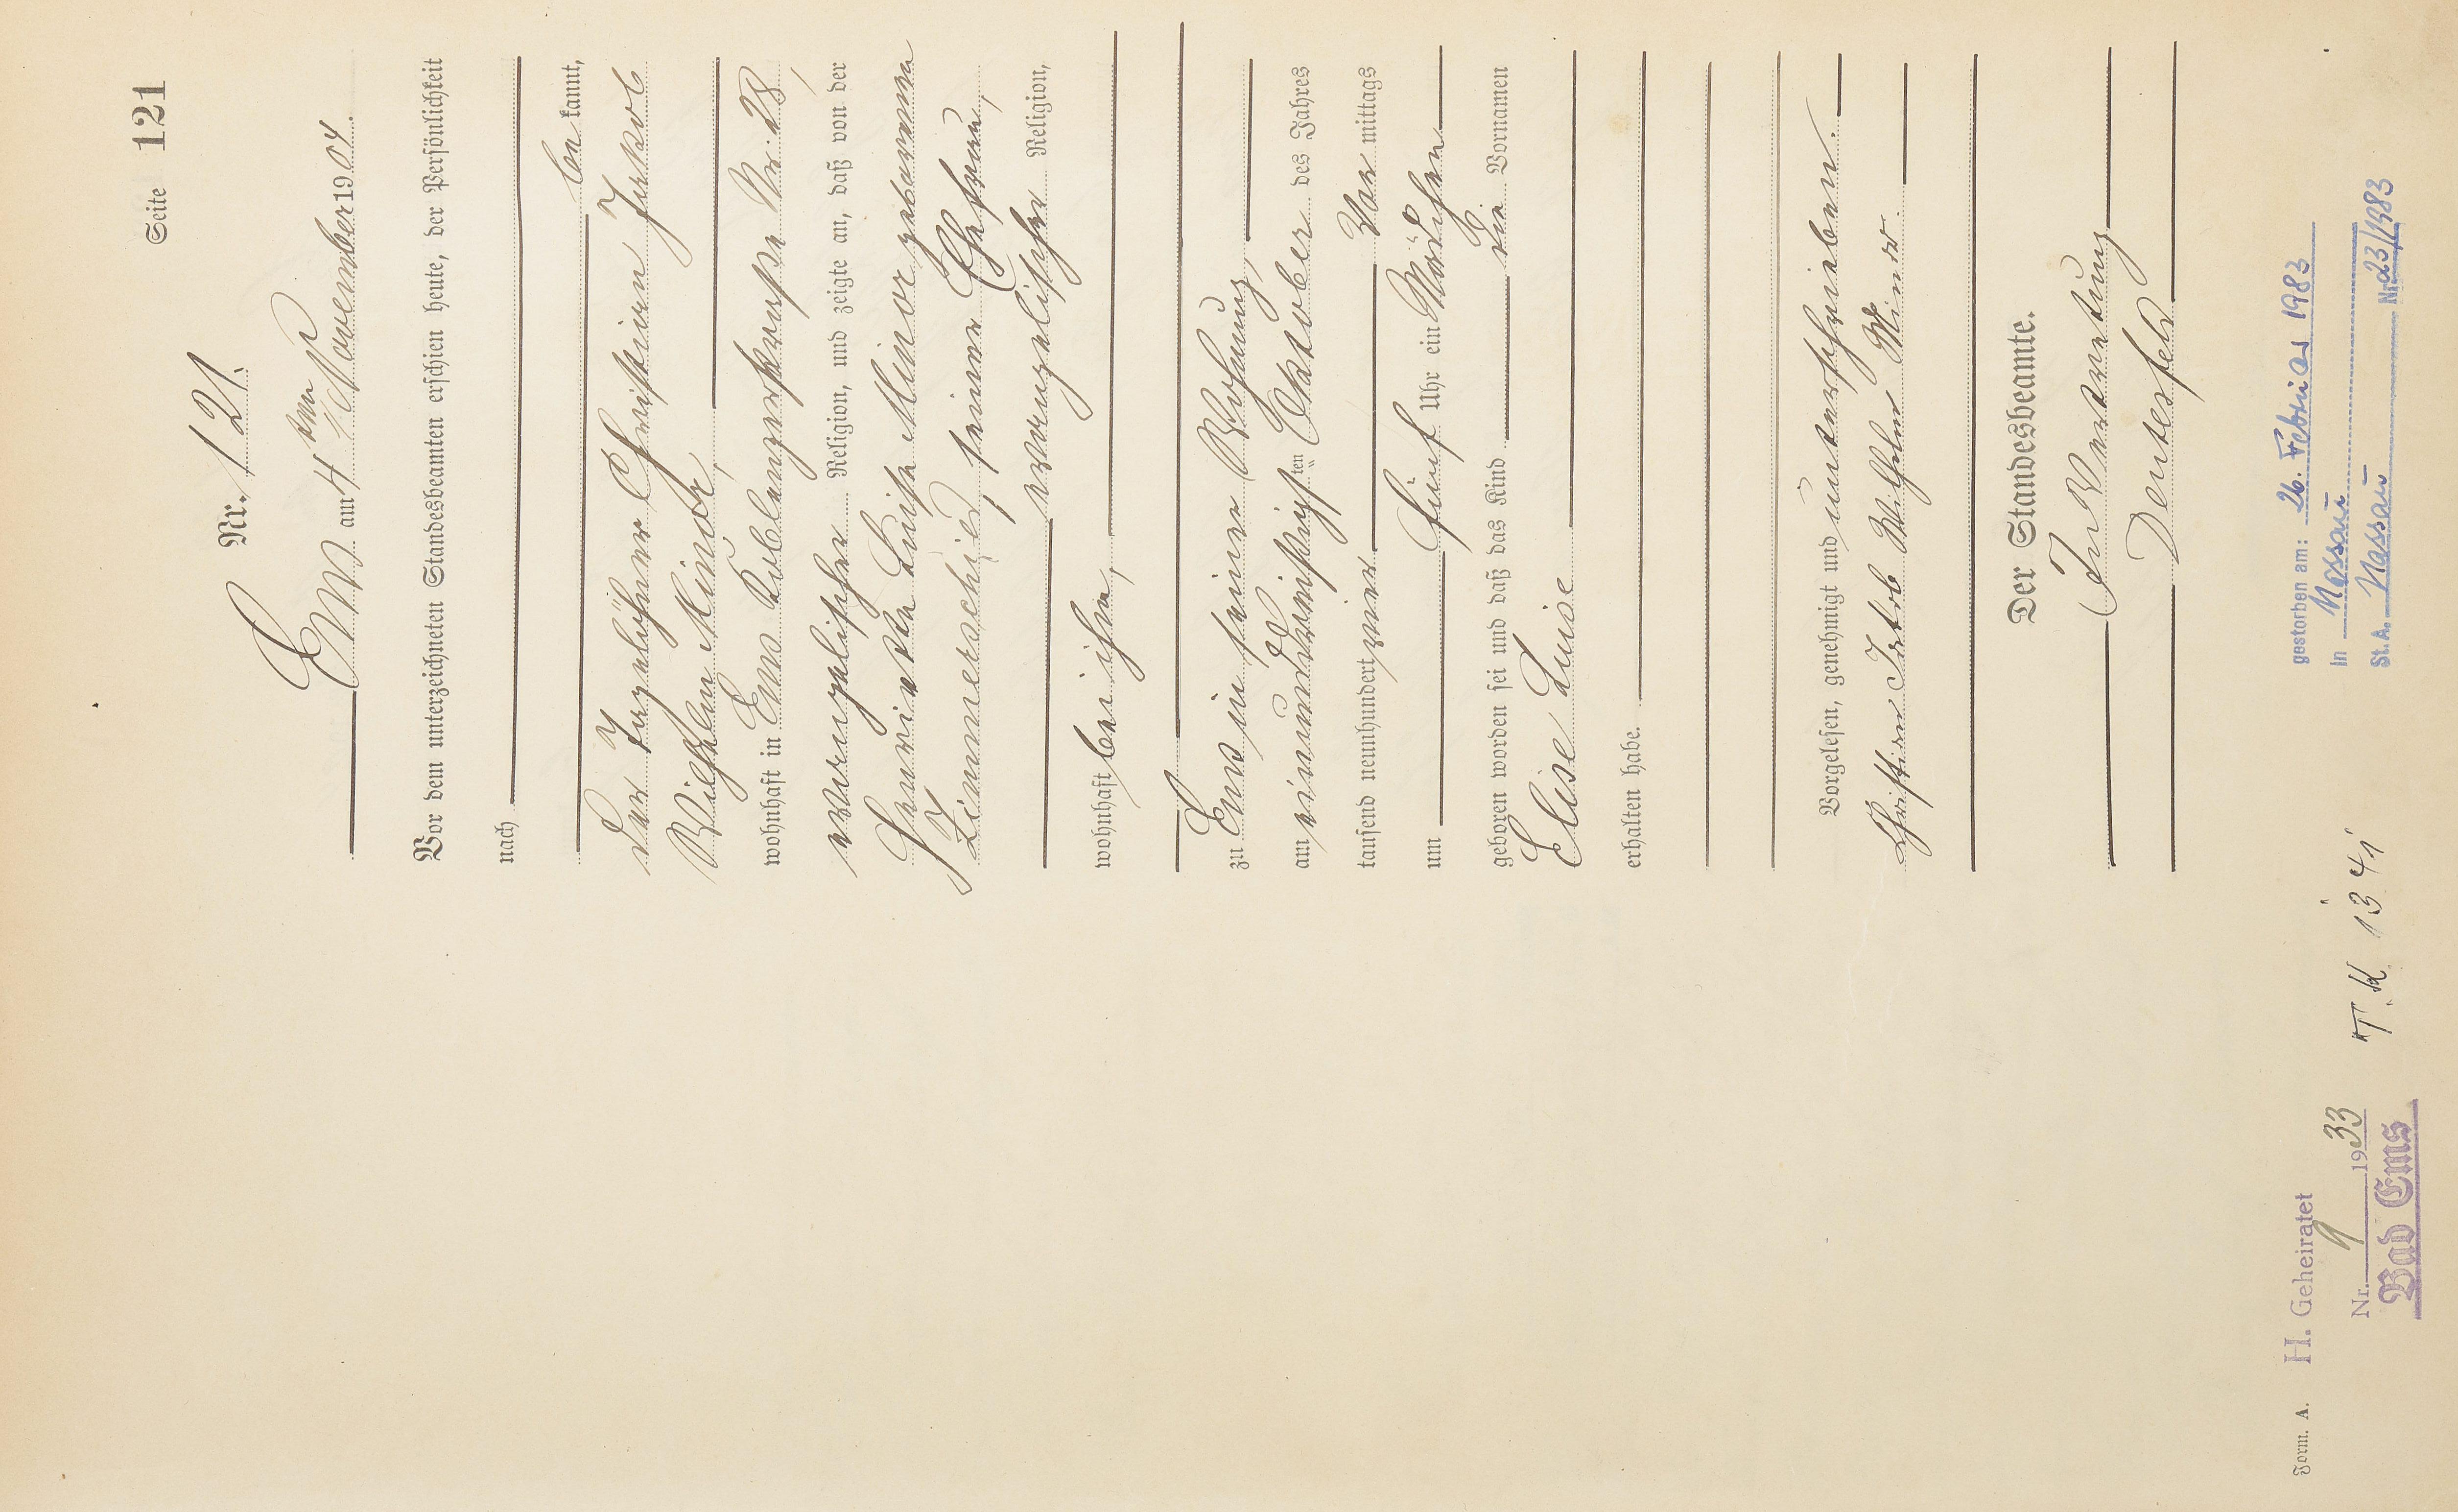 Seite 121
Nr. 121.
Ems am 4ten November 1904.
Vor dem unterzeichneten Standesbeamten erschien heute, der Persönlichkeit
nach
be kannt,
der Tagelöhner Christian Jakob
Wilhelm Minor,
wohnhaft in Ems Koblenzerstraße Nr. 28,
evangelischer Religion, und zeigte an, daß von der
Henriette Luise Minor geborenen
Zimmerschied, seiner Ehefrau,
evangelischer Religion,
wohnhaft bei ihm,
zu Ems in seiner Wohnung,
am einunddreißigsten Oktober des Jahres
tausend neunhundert vier Vor mittags
um fünf Uhr ein Mädchen
geboren worden sei und daß das Kind die Vornamen
Elise Luise
erhalten habe.
Vorgelesen, genehmigt und unterschrieben.
Christian Jakob Wilhelm Minor.
Der Standesbeamte.
In Vertretung
Deutesfeld
Form. A.
H. Geheiratet
Nr. 9 1933
Bad Ems
T. H 1341
gestorben am: 26. Februar 1983
in Nassau
St.A. Nassau Nr. 23/1983